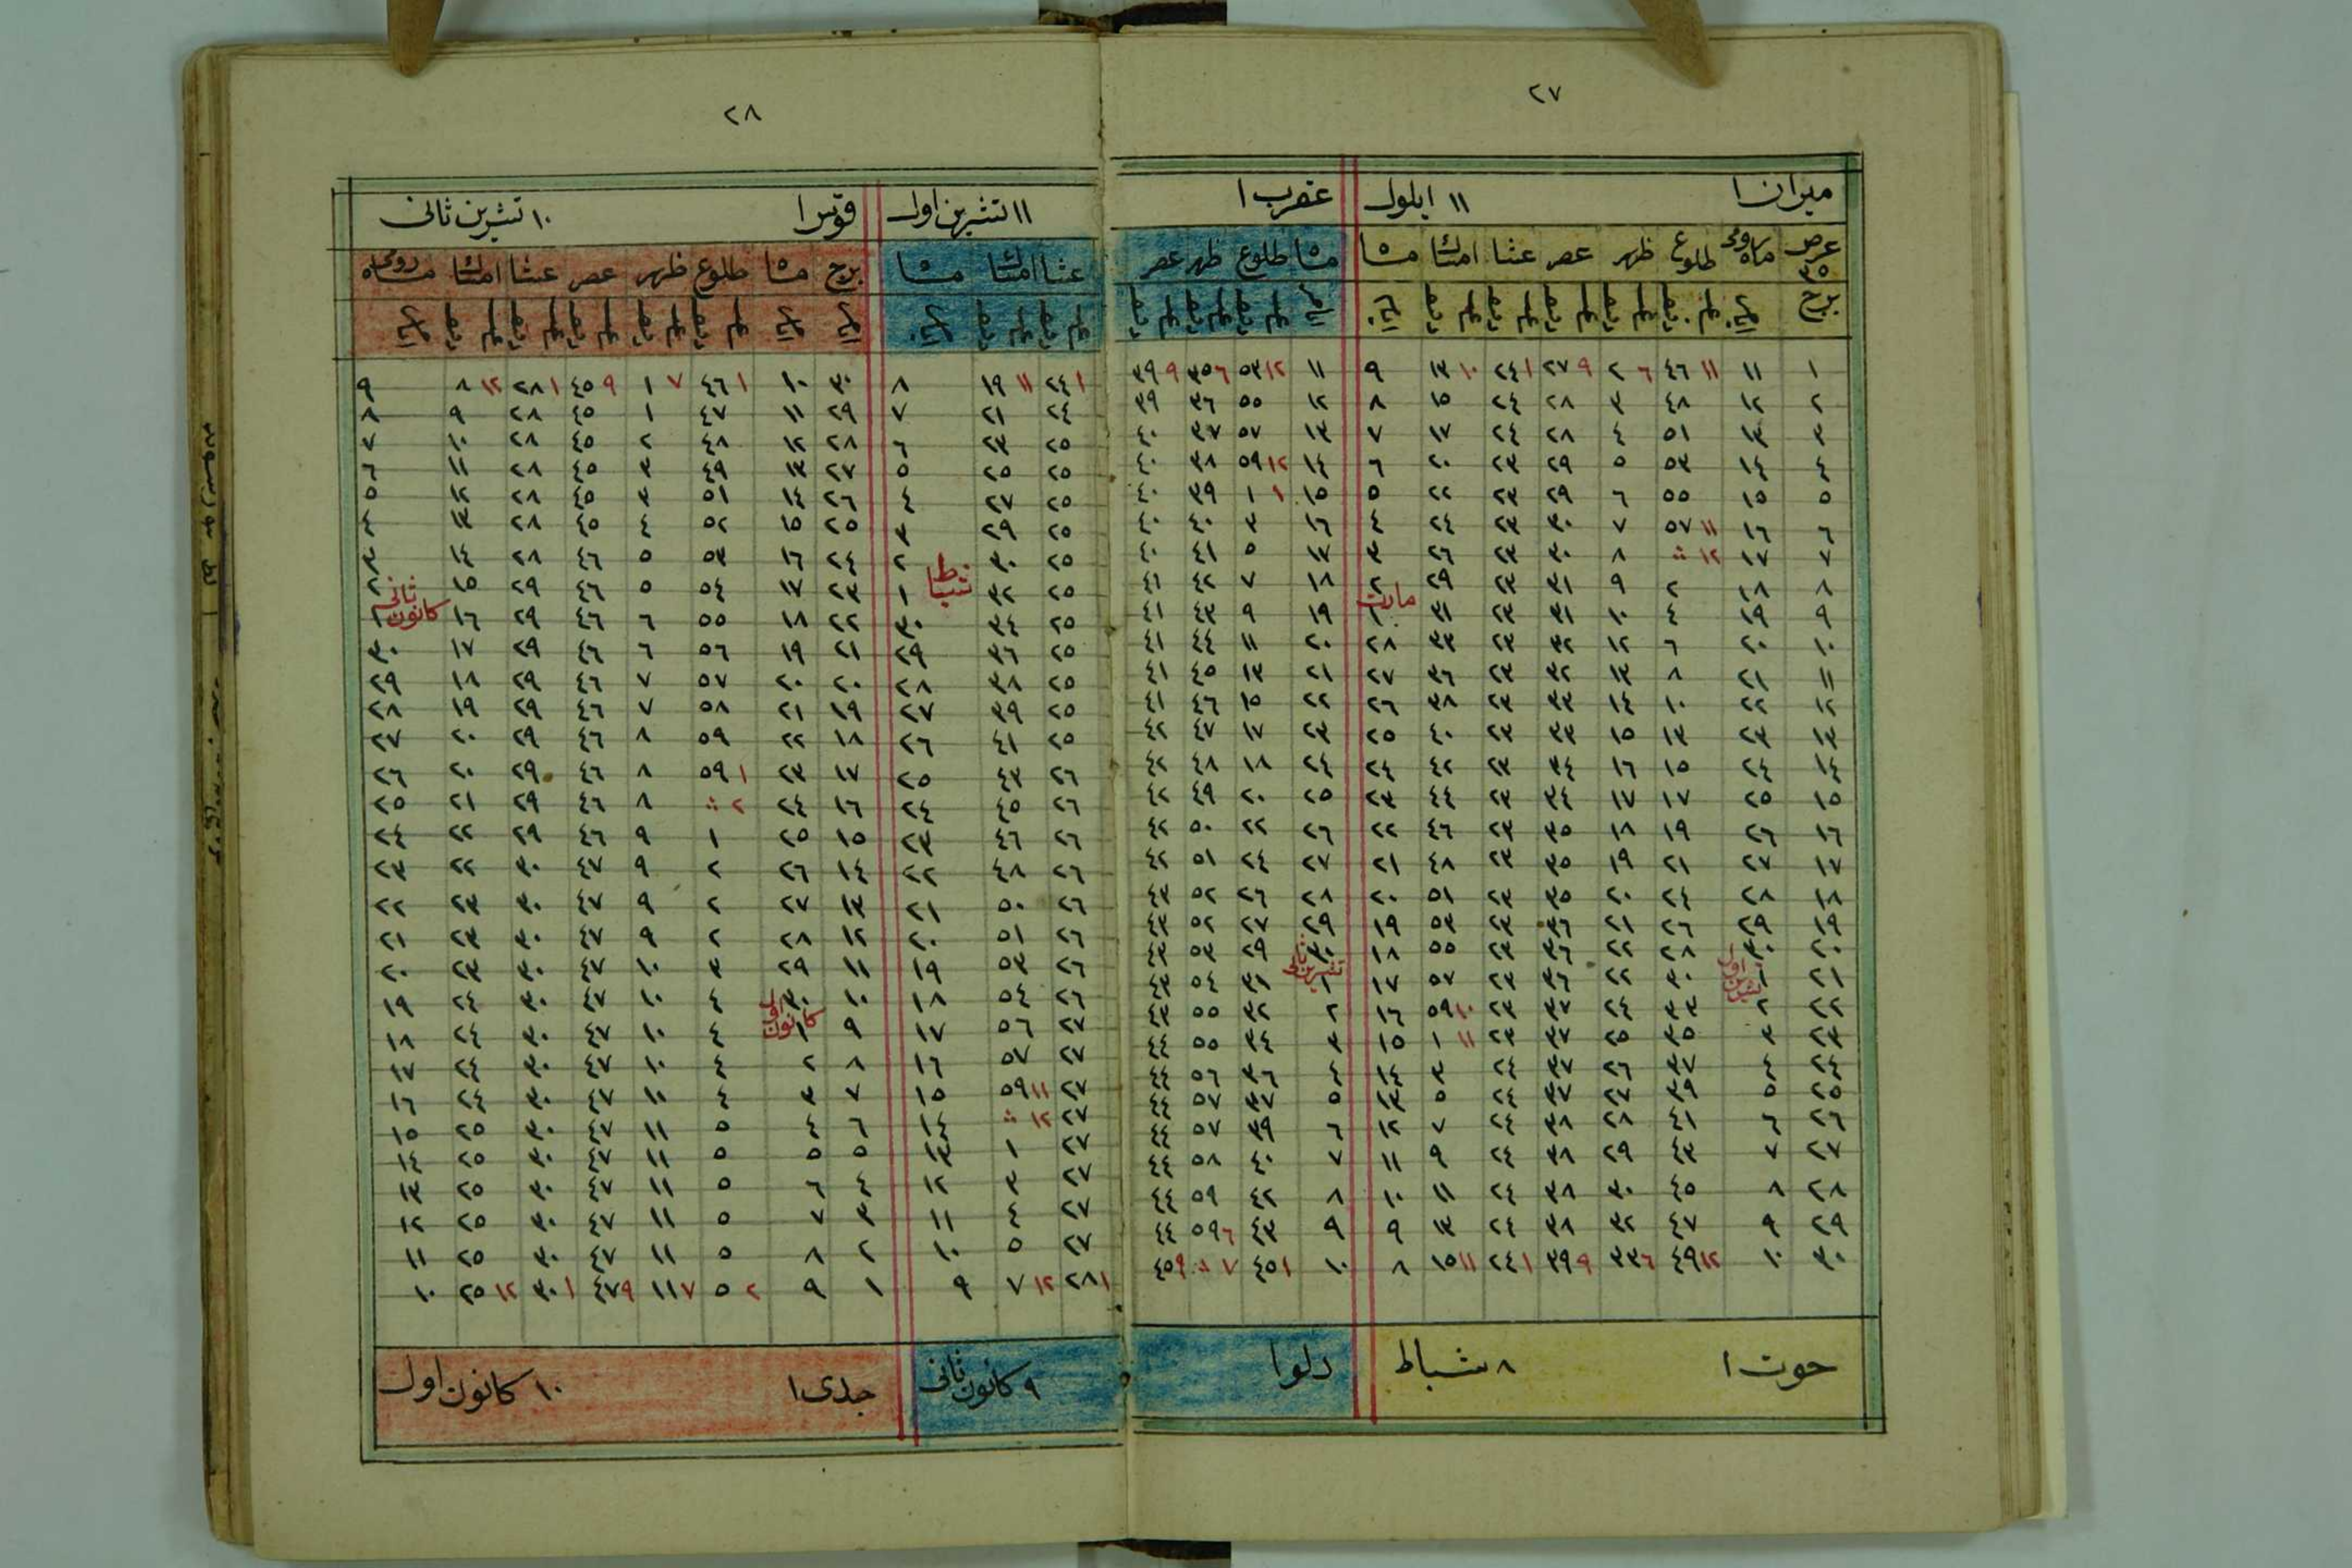 ٢٧
ميزان ١ ١١ ايلول عقرب ١
عرض ٣٥ ماه رومى طلوع ظهر عصر عشا امساك ماه ماه طلوع ظهر عصر
برج
١ ١١ ١١ ٤٦ ٦ ٢ ٩ ٢٧ ١ ٢٤ ١٠ ١٣ ٩ ١١ ١٢ ٥٣ ٦ ٣٥ ٩ ٣٩
٢ ١٢ ٤٨ ٣ ٢٨ ٢٤ ١٥ ٨ ١٢ ٥٥ ٣٦ ٣٩
٣ ١٣ ٥١ ٤ ٢٨ ٢٤ ١٧ ٧ ١٣ ٥٧ ٣٧ ٤٠
٤ ١٤ ٥٣ ٥ ٢٩ ٢٣ ٢٠ ٦ ١٤ ١٢ ٥٩ ٣٨ ٤٠
٥ ١٥ ٥٥ ٦ ٢٩ ٢٣ ٢٢ ٥ ١٥ ١ ١ ٣٩ ٤٠
٦ ١٦ ١١ ٥٧ ٧ ٣٠ ٢٣ ٢٤ ٤ ١٦ ٣ ٤٠ ٤٠
٧ ١٧ ١٢ ⁖ ٨ ٣٠ ٢٣ ٢٦ ٣ ١٧ ٥ ٤١ ٤٠
٨ ١٨ ٢ ٩ ٣١ ٢٣ ٢٩ ٢ ١٨ ٧ ٤٢ ٤١
٩ ١٩ ٤ ١٠ ٣١ ٢٣ ٣١ مارت ١ ١٩ ٩ ٤٣ ٤١
١٠ ٢٠ ٦ ١٢ ٣٢ ٢٣ ٣٣ ٢٨ ٢٠ ١١ ٤٤ ٤١
١١ ٢١ ٨ ١٣ ٣٢ ٢٣ ٣٦ ٢٧ ٢١ ١٣ ٤٥ ٤١
١٢ ٢٢ ١٠ ١٤ ٣٣ ٢٣ ٣٨ ٢٦ ٢٢ ١٥ ٤٦ ٤١
١٣ ٢٣ ١٣ ١٥ ٣٣ ٢٣ ٤٠ ٢٥ ٢٣ ١٧ ٤٧ ٤٢
١٤ ٢٤ ١٥ ١٦ ٣٤ ٢٣ ٤٢ ٢٤ ٢٤ ١٨ ٤٨ ٤٢
١٥ ٢٥ ١٧ ١٧ ٣٤ ٢٣ ٤٤ ٢٣ ٢٥ ٢٠ ٤٩ ٤٢
١٦ ٢٦ ١٩ ١٨ ٣٥ ٢٣ ٤٦ ٢٢ ٢٦ ٢٢ ٥٠ ٤٢
١٧ ٢٧ ٢١ ١٩ ٣٥ ٢٣ ٤٨ ٢١ ٢٧ ٢٤ ٥١ ٤٢
١٨ ٢٨ ٢٤ ٢٠ ٣٥ ٢٣ ٥١ ٢٠ ٢٨ ٢٦ ٥٢ ٤٣
١٩ ٢٩ ٢٦ ٢١ ٣٦ ٢٣ ٥٣ ١٩ ٢٩ ٢٧ ٥٢ ٤٣
٢٠ ٣٠ ٢٨ ٢٢ ٣٦ ٢٣ ٥٥ ١٨ ٣٠ ٢٩ ٥٣ ٤٣
٢١ تشرين اول ١ ٣٠ ٢٢ ٣٦ ٢٣ ٥٧ ١٧ تشرين ثانى ١ ٣١ ٥٤ ٤٣
٢٢ ٢ ٣٣ ٢٤ ٣٧ ٢٣ ١٠ ٥٩ ١٦ ٢ ٣٢ ٥٥ ٤٣
٢٣ ٣ ٣٥ ٢٥ ٣٧ ٢٣ ١١ ١ ١٥ ٣ ٣٤ ٥٥ ٤٤
٢٤ ٤ ٣٧ ٢٦ ٣٧ ٢٤ ٣ ١٤ ٤ ٣٦ ٥٦ ٤٤
٢٥ ٥ ٣٩ ٢٧ ٣٧ ٢٤ ٥ ١٣ ٥ ٣٧ ٥٧ ٤٤
٢٦ ٦ ٤١ ٢٨ ٣٨ ٢٤ ٧ ١٢ ٦ ٣٩ ٥٧ ٤٤
٢٧ ٧ ٤٣ ٢٩ ٣٨ ٢٤ ٩ ١١ ٧ ٤٠ ٥٨ ٤٤
٢٨ ٨ ٤٥ ٣٠ ٣٨ ٢٤ ١١ ١٠ ٨ ٤٢ ٥٩ ٤٤
٢٩ ٩ ٤٧ ٣٢ ٣٨ ٢٤ ١٣ ٩ ٩ ٤٣ ٦ ٥٩ ٤٤
٣٠ ١٠ ١٢ ٤٩ ٦ ٣٣ ٩ ٣٩ ١ ٢٤ ١١ ١٥ ٨ ١٠ ١ ٤٥ ٧ ⁖ ٩ ٤٥
حوت ١ ٨ شباط دلو ١
٢٨
١١ تشرين اول قوس ١ ١٠ تشرين ثانى
عشا امساك ماه برج ماه طلوع ظهر عصر عشا امساك ماه رومى
١ ٢٤ ١١ ١٩ ٨ ٣٠ ١٠ ١ ٤٦ ٧ ١ ٩ ٤٥ ١ ٢٨ ١٢ ٨ ٩
٢٤ ٢١ ٧ ٢٩ ١١ ٤٧ ١ ٤٥ ٢٨ ٩ ٨
٢٥ ٢٣ ٦ ٢٨ ١٢ ٤٨ ٢ ٤٥ ٢٨ ١٠ ٧
٢٥ ٢٥ ٥ ٢٧ ١٣ ٤٩ ٣ ٤٥ ٢٨ ١١ ٦
٢٥ ٢٧ ٤ ٢٦ ١٤ ٥١ ٣ ٤٥ ٢٨ ١٢ ٥
٢٥ ٢٩ ٣ ٢٥ ١٥ ٥٢ ٤ ٤٥ ٢٨ ١٣ ٤
٢٥ ٣٠ ٢ ٢٤ ١٦ ٥٣ ٥ ٤٦ ٢٨ ١٤ ٣
٢٥ ٣٢ شباط ١ ٢٣ ١٧ ٥٤ ٥ ٤٦ ٢٩ ١٥ ٢
٢٥ ٣٤ ٣٠ ٢٢ ١٨ ٥٥ ٦ ٤٦ ٢٩ ١٦ كانون ثانى ١
٢٥ ٣٦ ٢٩ ٢١ ١٩ ٥٦ ٦ ٤٦ ٢٩ ١٧ ٣٠
٢٥ ٣٨ ٢٨ ٢٠ ٢٠ ٥٧ ٧ ٤٦ ٢٩ ١٨ ٢٩
٢٥ ٣٩ ٢٧ ١٩ ٢١ ٥٨ ٧ ٤٦ ٢٩ ١٩ ٢٨
٢٥ ٤١ ٢٦ ١٨ ٢٢ ٥٩ ٨ ٤٦ ٢٩ ٢٠ ٢٧
٢٦ ٤٣ ٢٥ ١٧ ٢٣ ١ ٥٩ ٨ ٤٦ ٢٩ ٢٠ ٢٦
٢٦ ٤٥ ٢٤ ١٦ ٢٤ ٢ ⁖ ٨ ٤٦ ٢٩ ٢١ ٢٥
٢٦ ٤٦ ٢٣ ١٥ ٢٥ ١ ٩ ٤٦ ٢٩ ٢٢ ٢٤
٢٦ ٤٨ ٢٢ ١٤ ٢٦ ٢ ٩ ٤٧ ٣٠ ٢٢ ٢٣
٢٦ ٥٠ ٢١ ١٣ ٢٧ ٢ ٩ ٤٧ ٣٠ ٢٣ ٢٢
٢٦ ٥١ ٢٠ ١٢ ٢٨ ٢ ٩ ٤٧ ٣٠ ٢٣ ٢١
٢٦ ٥٣ ١٩ ١١ ٢٩ ٣ ١٠ ٤٧ ٣٠ ٢٣ ٢٠
٢٦ ٥٤ ١٨ ١٠ ٣٠ ٤ ١٠ ٤٧ ٣٠ ٢٤ ١٩
٢٧ ٥٦ ١٧ ٩ كانون اول ١ ٤ ١٠ ٤٧ ٣٠ ٢٤ ١٨
٢٧ ٥٧ ١٦ ٨ ٢ ٤ ١٠ ٤٧ ٣٠ ٢٤ ١٧
٢٧ ١١ ٥٩ ١٥ ٧ ٣ ٤ ١١ ٤٧ ٣٠ ٢٤ ١٦
٢٧ ١٢ ⁖ ١٤ ٦ ٤ ٥ ١١ ٤٧ ٣٠ ٢٥ ١٥
٢٧ ١ ١٣ ٥ ٥ ٥ ١١ ٤٧ ٣٠ ٢٥ ١٤
٢٧ ٣ ١٢ ٤ ٦ ٥ ١١ ٤٧ ٣٠ ٢٥ ١٣
٢٧ ٤ ١١ ٣ ٧ ٥ ١١ ٤٧ ٣٠ ٢٥ ١٢
٢٧ ٥ ١٠ ٢ ٨ ٥ ١١ ٤٧ ٣٠ ٢٥ ١١
١ ٢٨ ١٢ ٧ ٩ ١ ٩ ٢ ٥ ٧ ١١ ٩ ٤٧ ١ ٣٠ ١٢ ٢٥ ١٠
٩ كانون ثانى جدى ١ ١٠ كانون اول